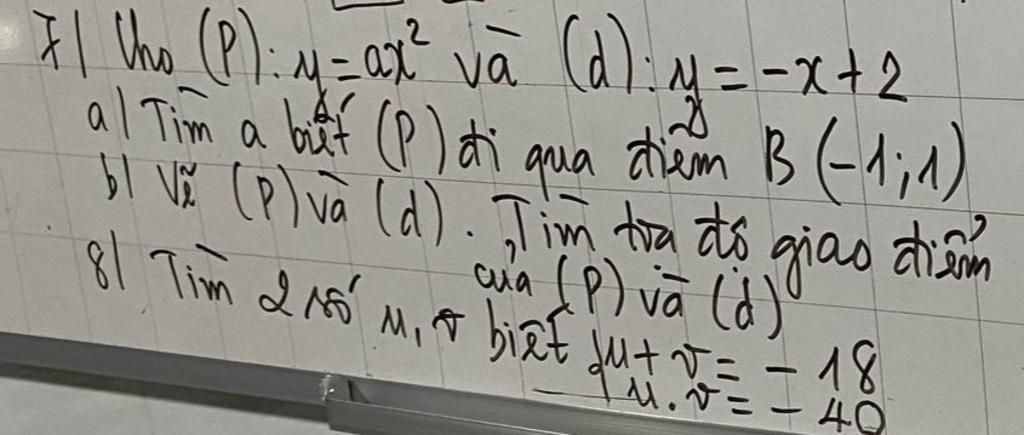 7/ Cho (P): y = ax² và (d): y = -x + 2
a/ Tìm a biết (P) đi qua điểm B (-1; 1)
b/ Vẽ (P) và (d). Tìm tọa độ giao điểm
của (P) và (d)
8/ Tìm 2 số u, v biết { u + v = - 18
u . v = - 40